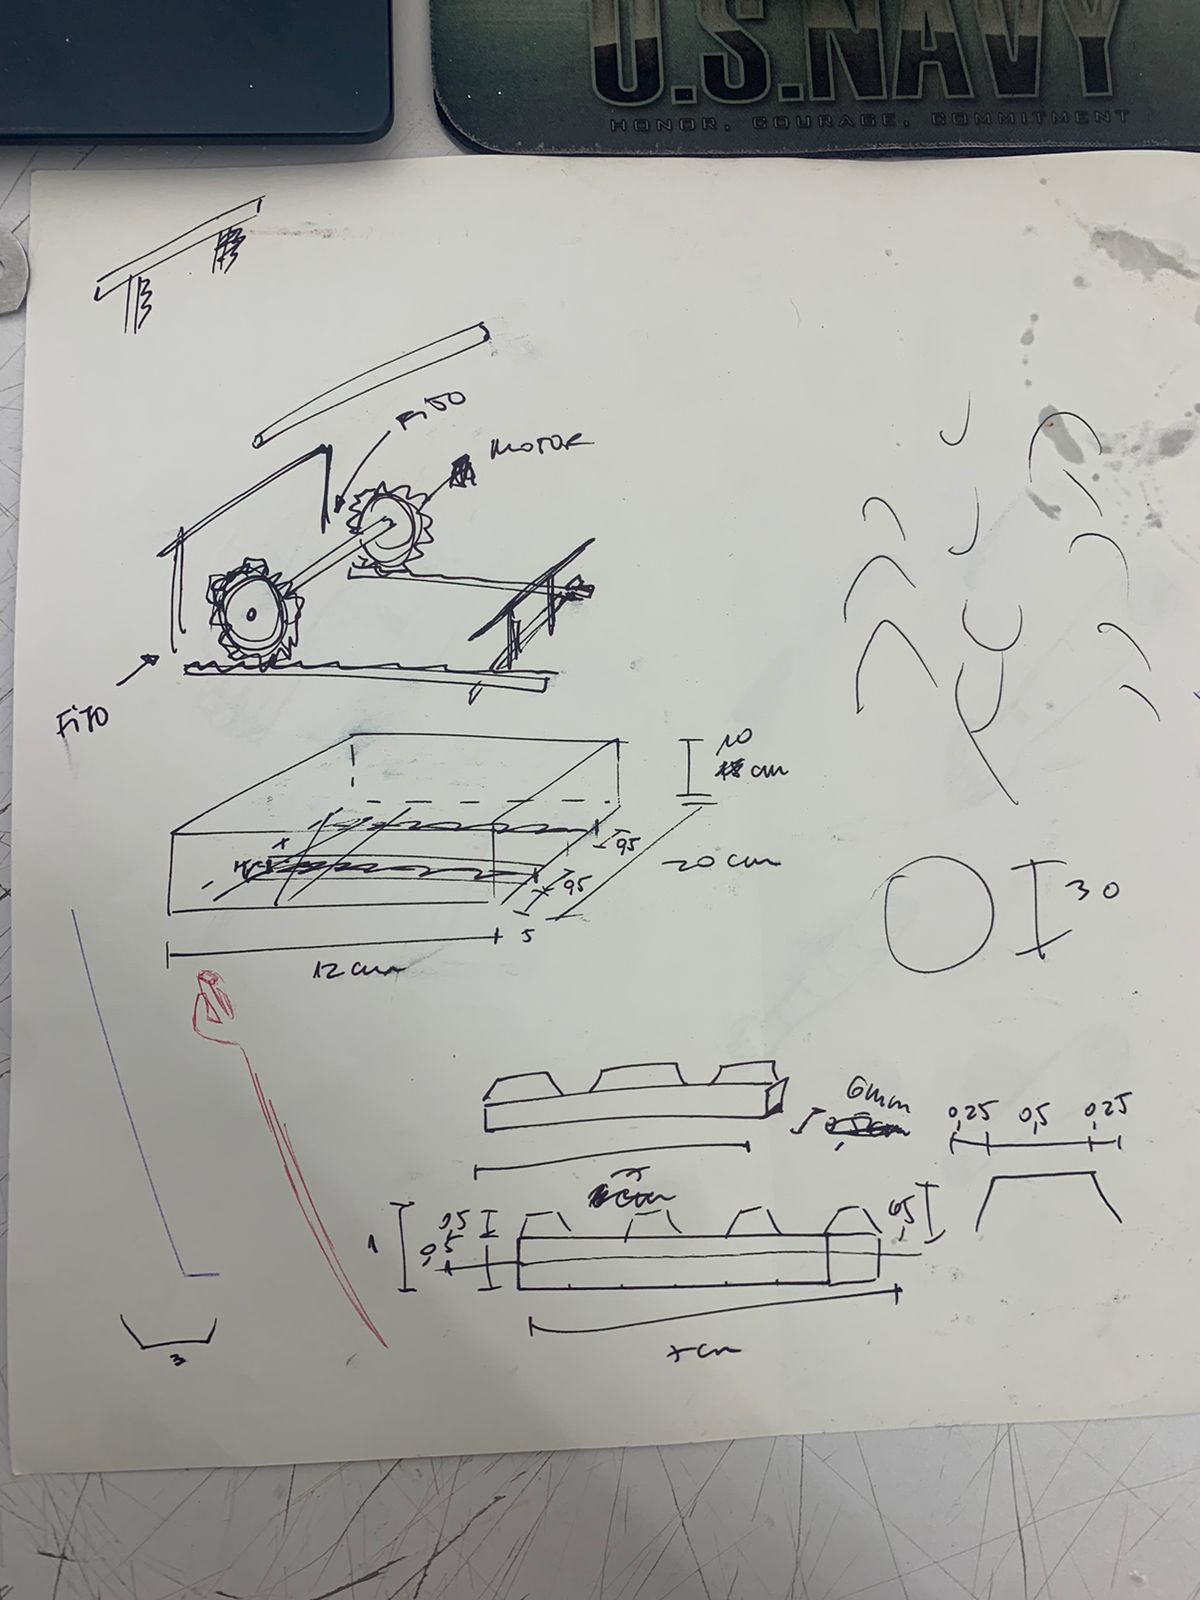 U.S.NAVY
HONOR, COURAGE, COMMITMENT
FiJO
MOTOR
FiJO
10
cm
95
20 cm
95
5
12 cm
30
6mm
0,25 0,5 0,25
0,5
0,5
1
0,5
7 cm
3